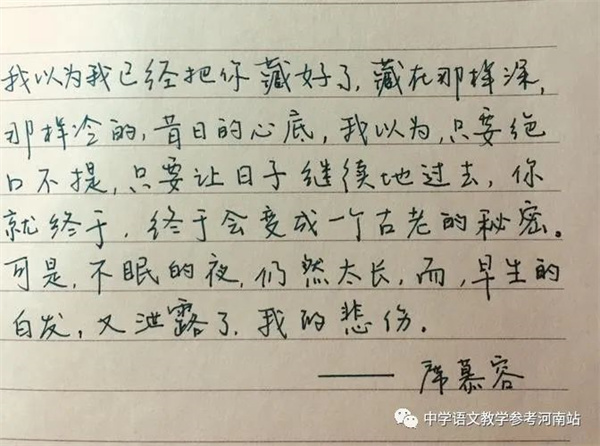 我以为我已经把你藏好了,藏在那样深,
那样冷的,昔日的心底,我以为,只要绝
口不提,只要让日子继续地过去,你
就终于,终于会变成一个古老的秘密。
可是,不眠的夜,仍然太长,而,早生的
白发,又泄露了,我的悲伤。
—— 席慕容
中学语文教学参考河南站